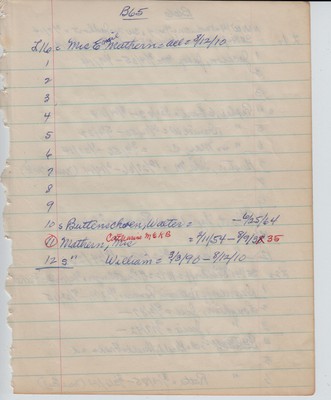 B65
Mrs E Mathern = 9/12/10
1
2
3
4
5
6
7
8
9
10 s Buttenickson, Walter = - 6/25/64
11 Mathern, Mrs Catharine M & B = 2/11/54 - 9/9/35
12 s " William = 3/3/90 - 9/12/10